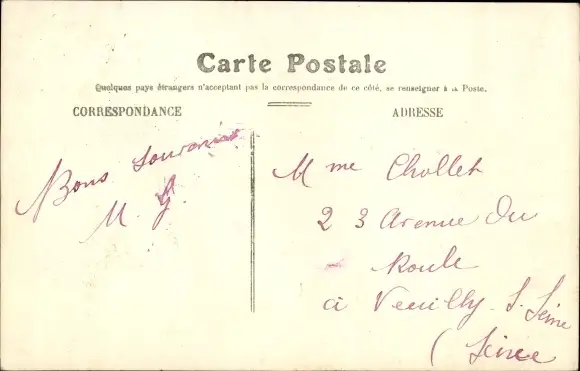 Carte Postale
Quelques pays étrangers n'acceptant pas la correspondance de ce côté, se renseigner à la Poste.
CORRESPONDANCE
ADRESSE
Bons souvenirs
M. G.
Mme Chollet
23 Avenue Du
Roule
à Neuilly. S. Seine
(Seine